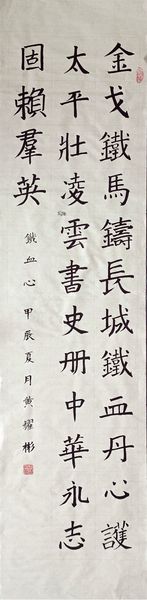 金戈鐵馬鑄長城鐵血丹心護
太平壯凌雲書史册中華永志
固賴羣英
鐵血心 甲辰夏月黄耀彬